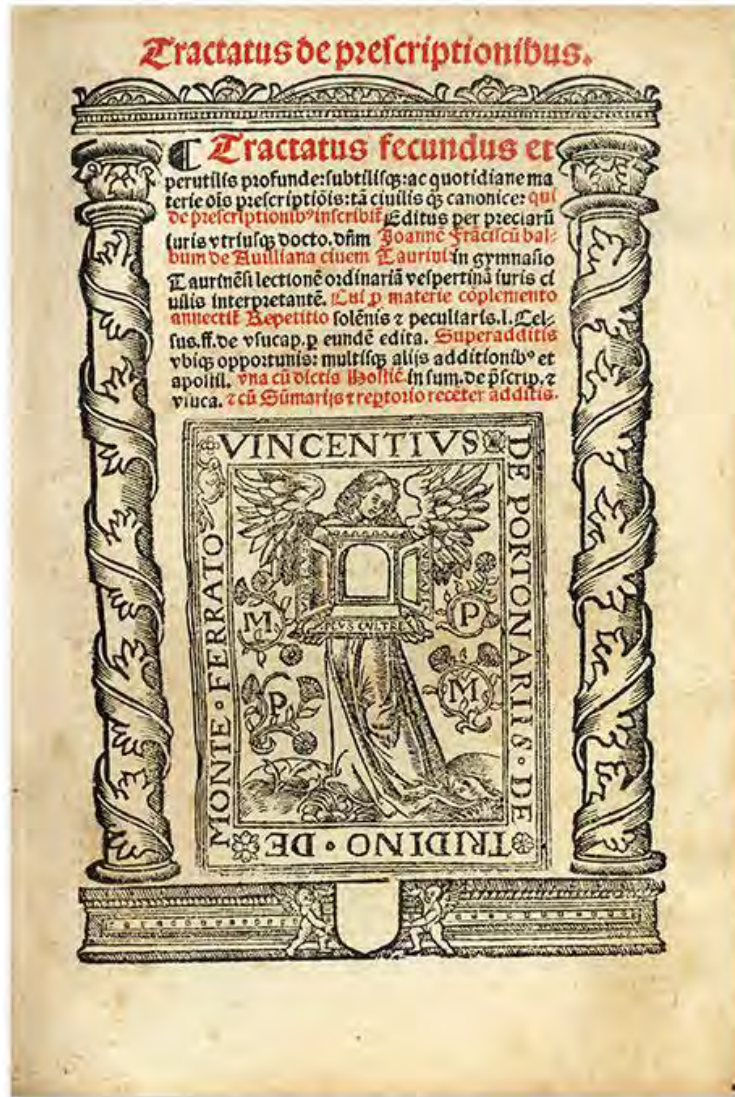 Tractatus de prescriptionibus.
Tractatus fecundus et
perutilis profunde: subtilisqꝫ: ac quotidiane ma
terie oĩs prescriptiõis: tã ciuilis qꝫ canonice: qui
de prescriptionibꝰ inscribit̃. Editus per preciarũ
iuris vtriusqꝫ docto. dñm Joannẽ Frãciscũ bal-
bum de Auilliana ciuem Taurini in gymnasio
Taurinẽsi lectionẽ ordinariã vespertinã iuris ci
uilis interpretantẽ. Cui ꝓ materie cõplemento
annectit̃ Repetitio solẽnis ⁊ peculiaris. l. Cel-
sus. ff. de vsucap. ꝑ eundẽ edita. Superadditis
vbiqꝫ opportunis: multisqꝫ alijs additionibꝰ et
apostil. vna cũ dictis Hostiẽ. in sum. de p̃scrip. ⁊
vsuca. ⁊ cũ Sũmarijs ⁊ reptorio recẽter additis.
VINCENTIVS
DE PORTONARIIS · DE
TRIDINO · DE
MONTE · FERRATO
M P
PLVS VLTRE
P M